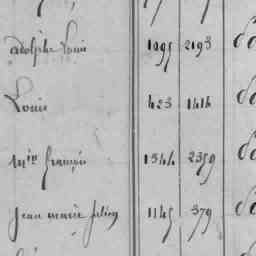 adolphe Louis 1095 2193
Louis 423 1414
M^ie françois 1344 2359
Jean marie julien 1145 379